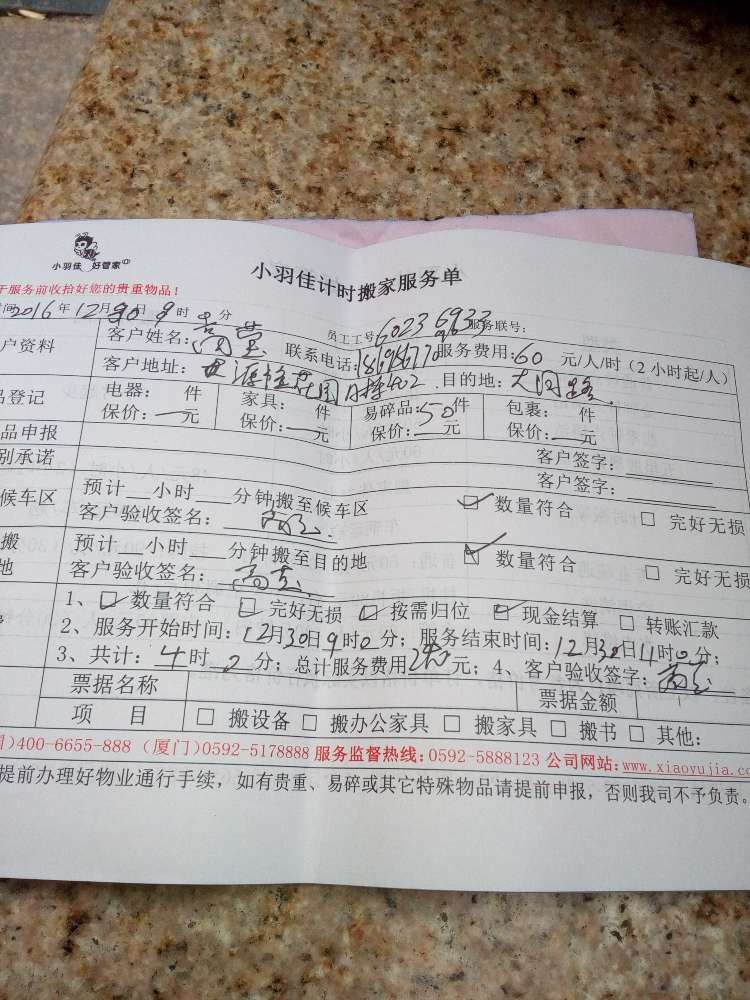 小羽佳 好管家
小羽佳计时搬家服务单
服务前收拾好您的贵重物品！
2016年12月30日9时 分
员工工号 60236933 服务联号：
户资料 客户姓名： 联系电话： 服务费用：60 元/人/时（2小时起/人）
客户地址： 402 目的地：大同路
品登记 电器： 件 家具： 件 易碎品： 件 包裹： 件
保价：—元 保价：—元 保价：50元 保价：—元
品申报 客户签字：
别承诺 客户签字：
候车区 预计__小时___分钟搬至候车区 ☑ 数量符合 □ 完好无损
客户验收签名：
搬 预计__小时___分钟搬至目的地 ☑ 数量符合 □ 完好无损
地 客户验收签名：
1、☑ 数量符合 ☑ 完好无损 ☑ 按需归位 ☑ 现金结算 □ 转账汇款
2、服务开始时间：12月30日9时0分；服务结束时间：12月30日11时0分；
3、共计：4时0分；总计服务费用240元；4、客户验收签字：
票据名称 票据金额
项 目 □ 搬设备 □ 搬办公家具 □ 搬家具 □ 搬书 □ 其他：
)400-6655-888 (厦门)0592-5178888 服务监督热线：0592-5888123 公司网站：www.xiaoyujia.co
提前办理好物业通行手续，如有贵重、易碎或其它特殊物品请提前申报，否则我司不予负责。